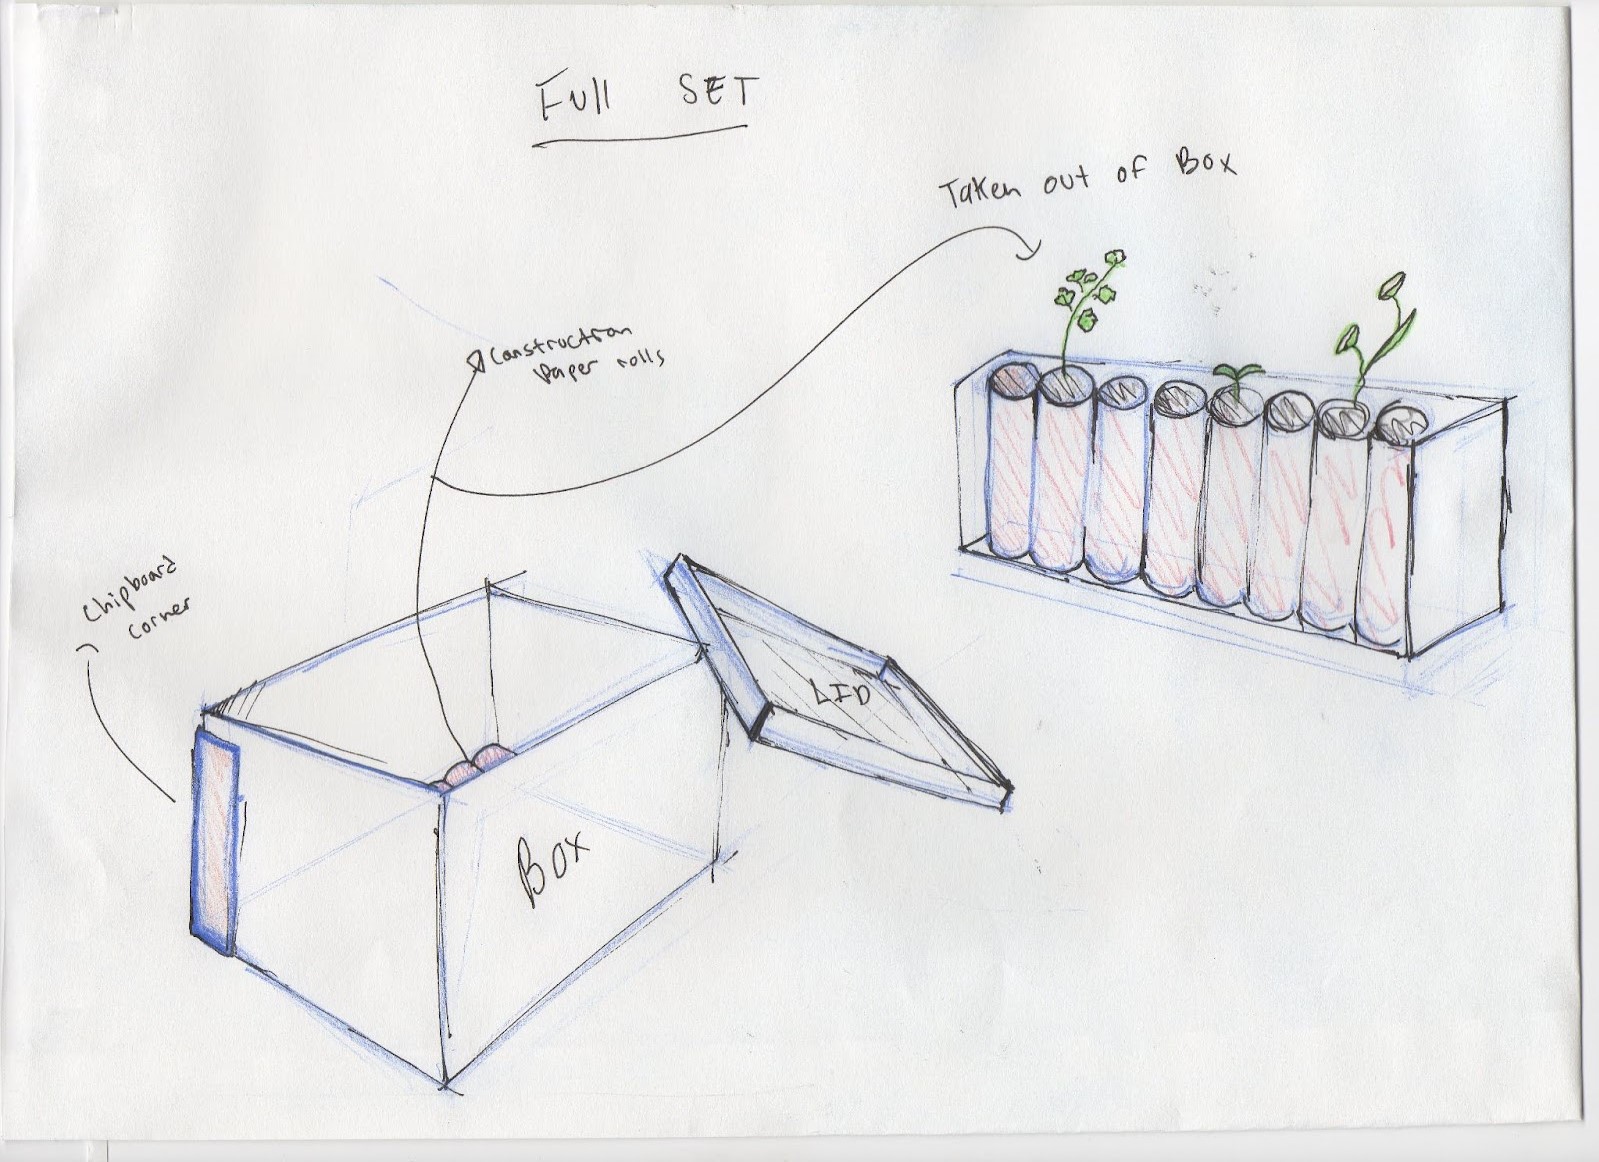 Full SET
Taken out of Box
Construction
Paper rolls
Chipboard
corner
LID
Box